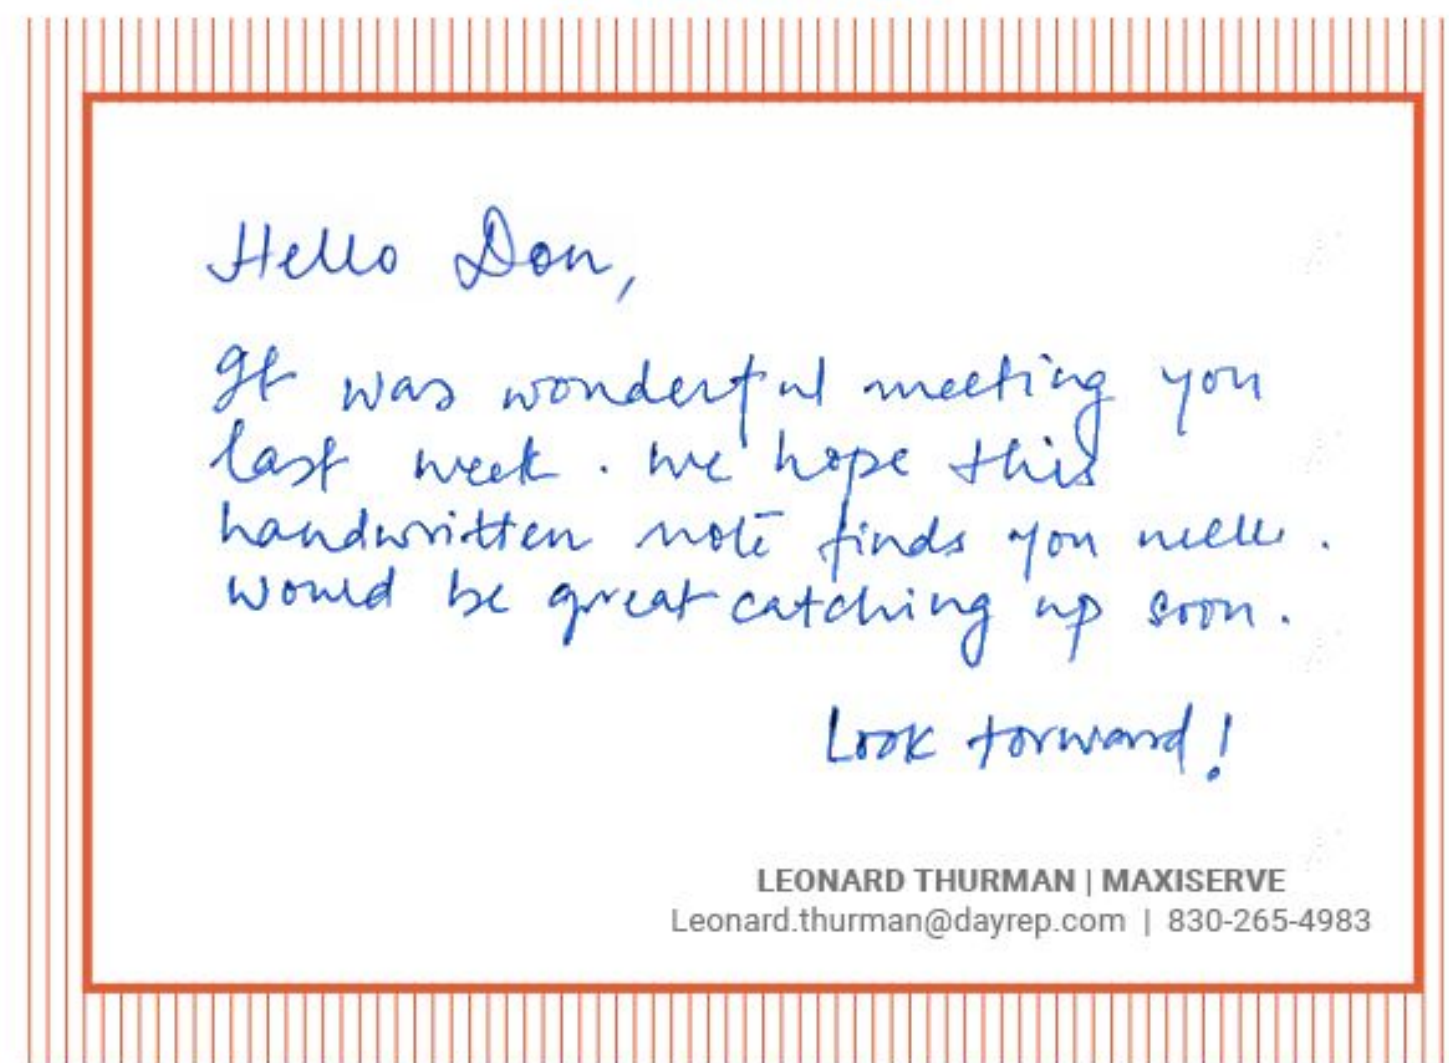 Hello Don,
It was wonderful meeting you
last week. We hope this
handwritten note finds you well.
Would be great catching up soon.
Look forward!
LEONARD THURMAN | MAXISERVE
Leonard.thurman@dayrep.com | 830-265-4983